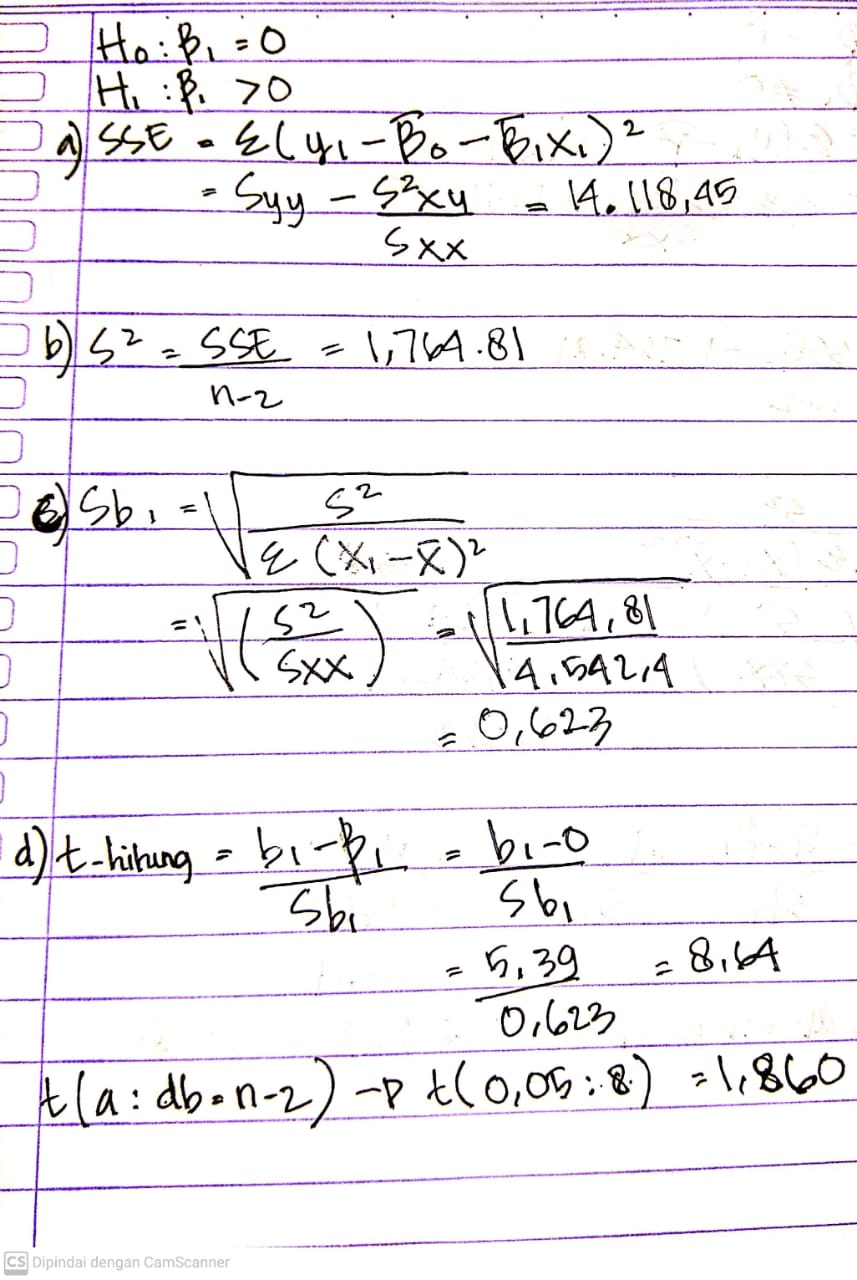 H₀ : β₁ = 0
H₁ : β₁ > 0
a) SSE = Σ(y₁ - β̄₀ - β̄₁x₁)²
= Syy - S²xy / Sxx = 14.118,45
b) S² = SSE / n-2 = 1,764.81
c) Sb₁ = √(S² / Σ(X₁ - X̄)²)
= √(S² / Sxx) = √(1,764,81 / 4,542,4)
= 0,623
d) t-hitung = b₁-β₁ / Sb₁ = b₁-0 / Sb₁
= 5,39 / 0,623 = 8,64
t(a : db = n-2) → t(0,05 ; 8) = 1,860
CS Dipindai dengan CamScanner